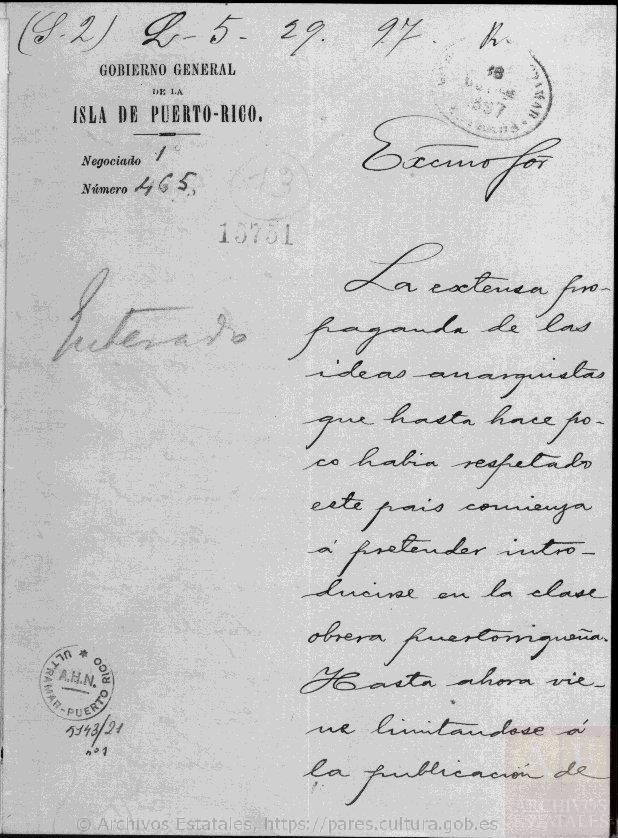 (S-2) L-5-29. 97. R.
GOBIERNO GENERAL
DE LA
ISLA DE PUERTO-RICO.
Negociado 1º
Número 465
13
15751
Excmo Sor
Enterado
La extensa pro-
paganda de las
ideas anarquistas
que hasta hace po-
co habia respetado
este pais comienza
á pretender intro-
ducirse en la clase
obrera puertorriqueña.
Hasta ahora vie-
ne limitandose á
la publicacion de
ULTRAMAR-PUERTO RICO
A.H.N.
5143/21
nº1
© Archivos Estatales, https://pares.cultura.gob.es
ARCHIVOS
ESTATALES